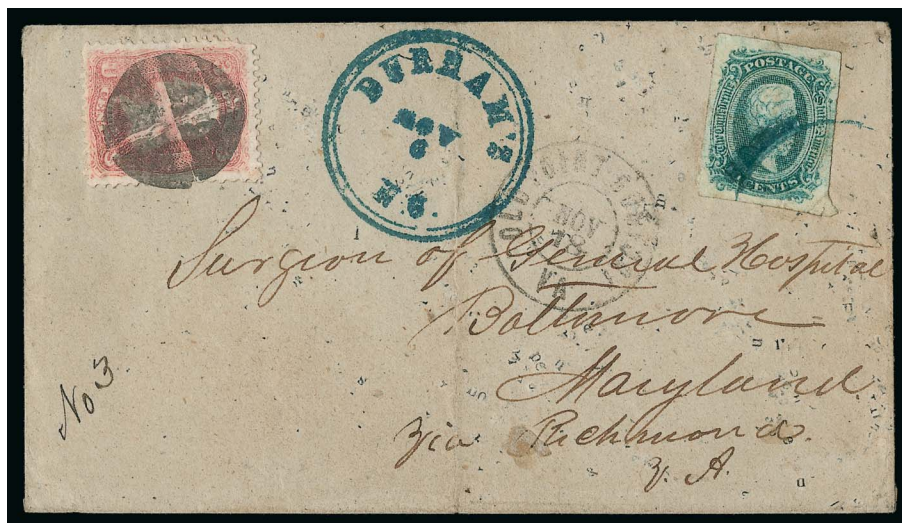 DURHAM'S
NOV
6
N.C.
OLD POINT COMFORT
NOV
13
VA
POSTAGE
CENTS
Surgion of General Hospital
Baltimore
Maryland
No 3
Via Richmond.
V. A.